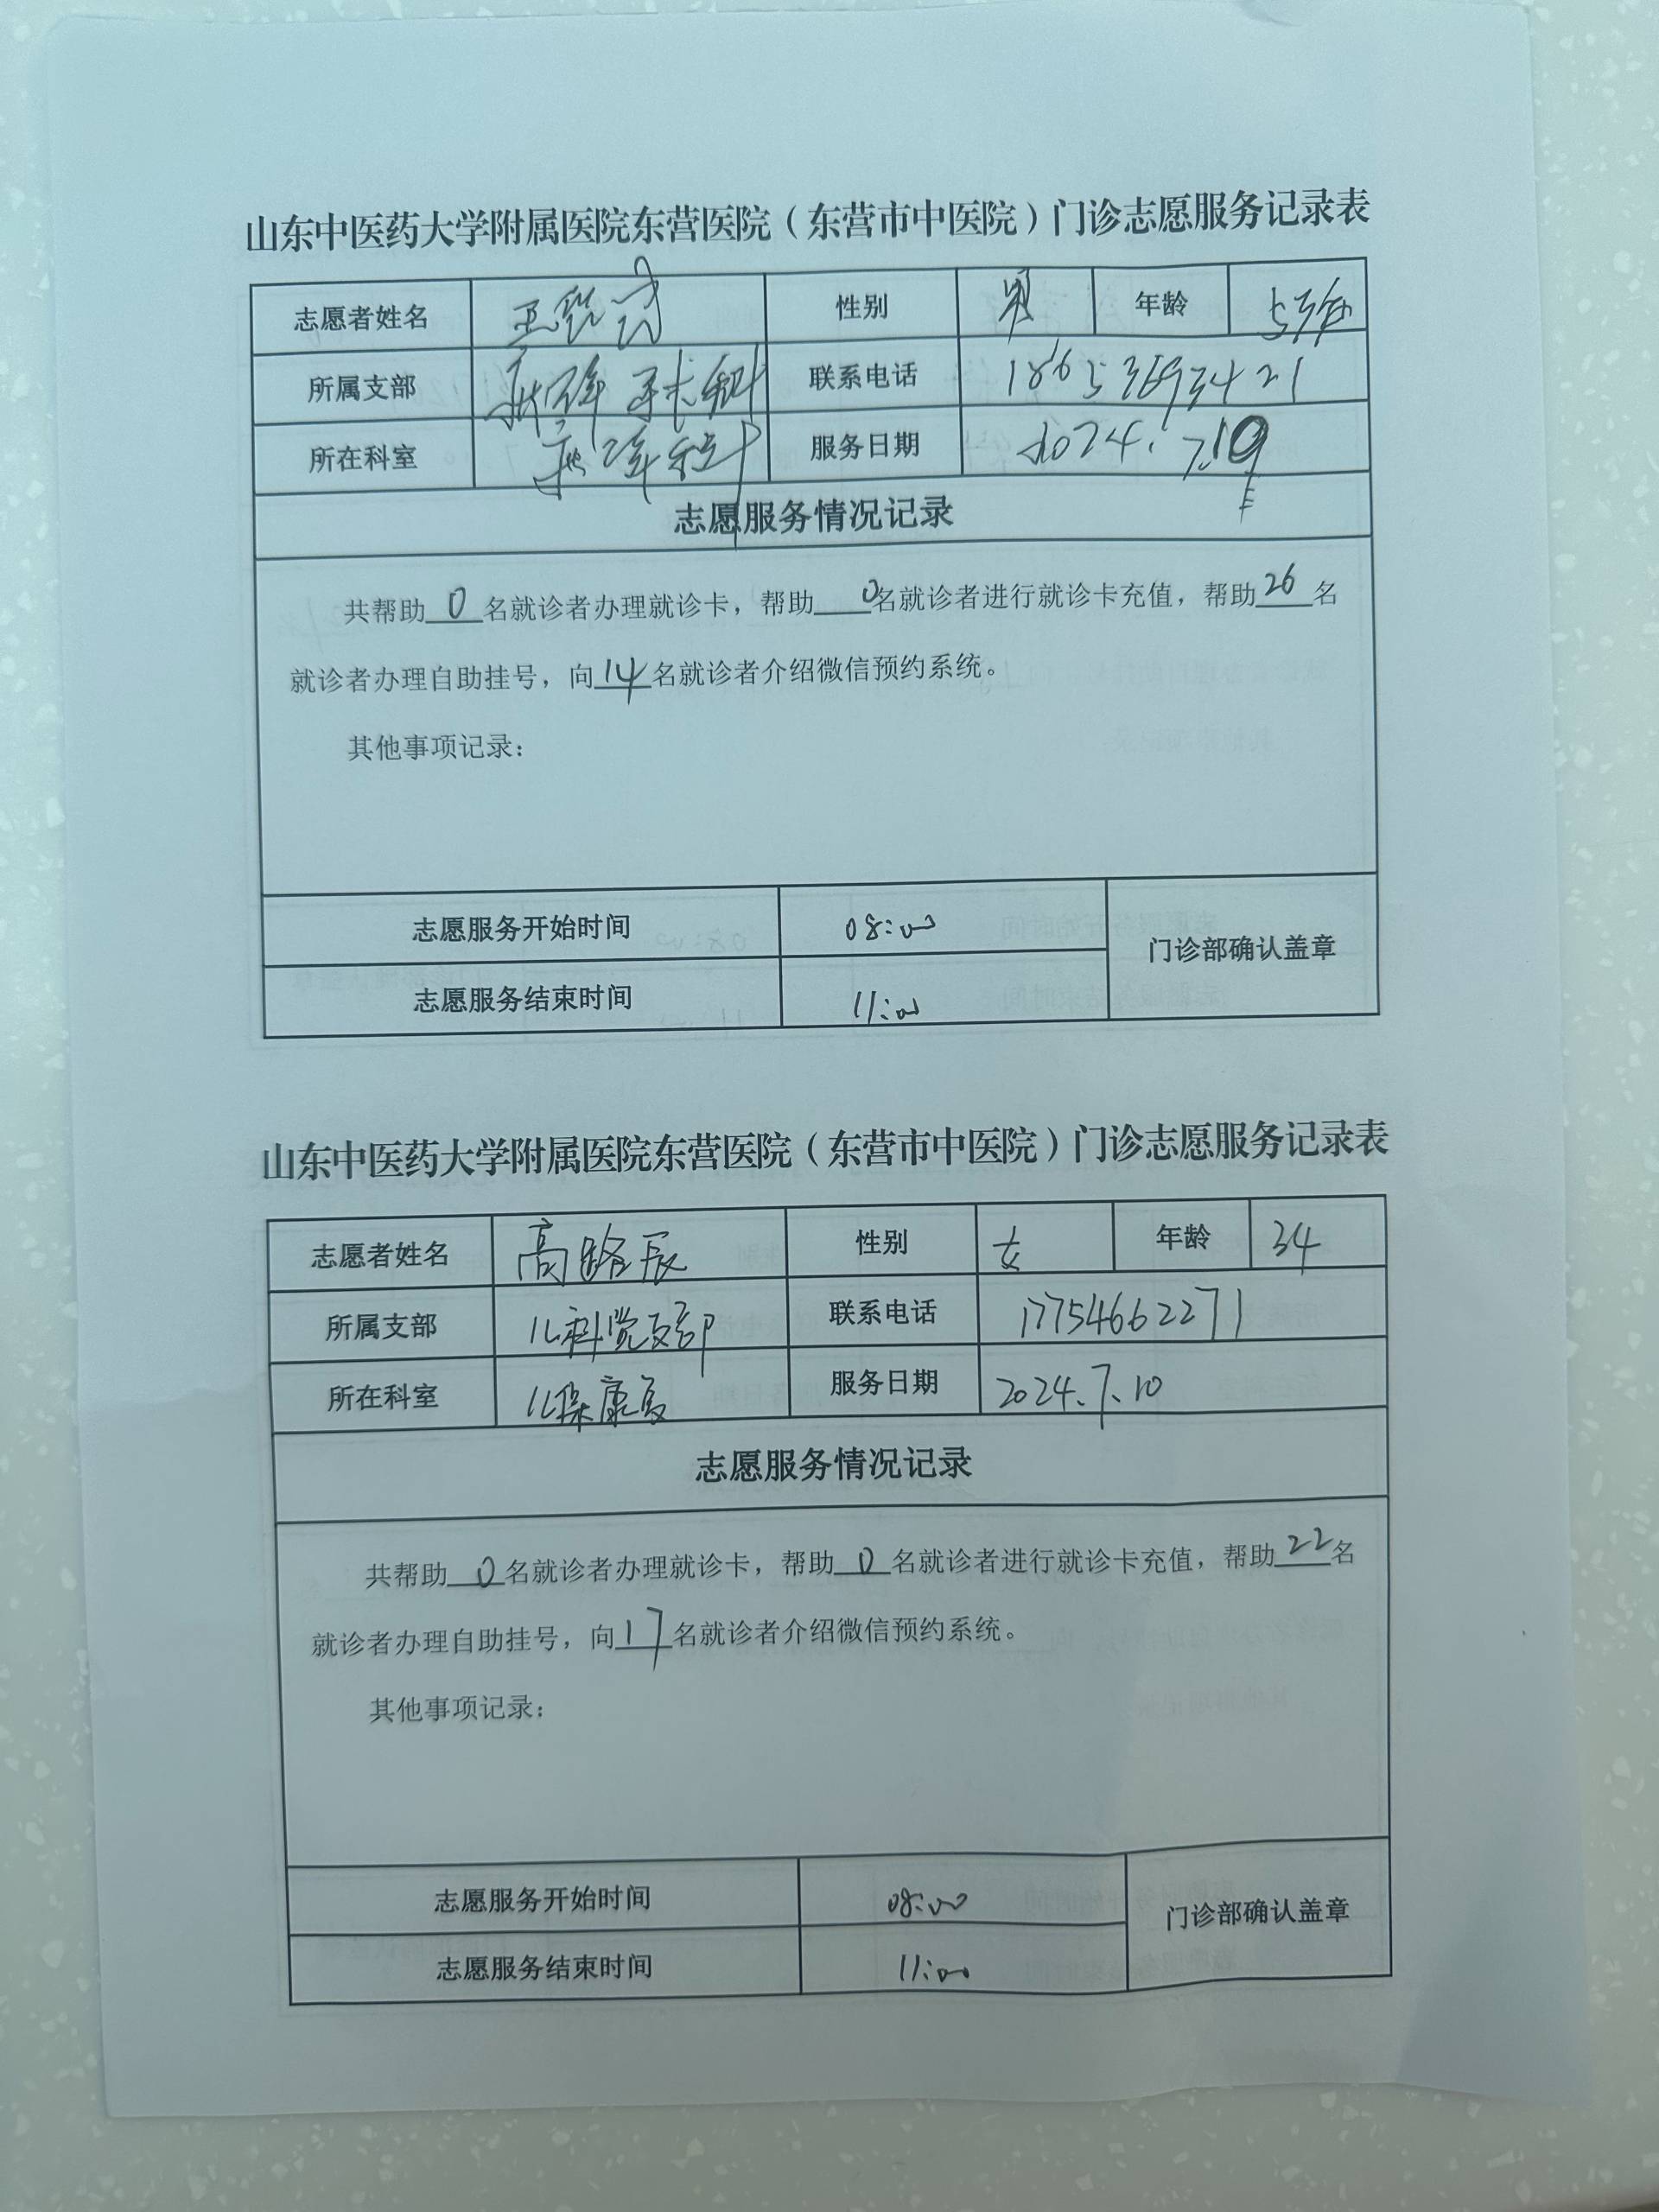 山东中医药大学附属医院东营医院（东营市中医院）门诊志愿服务记录表
志愿者姓名 性别 男 年龄
所属支部 联系电话
所在科室 服务日期 2024.7.10
志愿服务情况记录
共帮助 0 名就诊者办理就诊卡，帮助 0名就诊者进行就诊卡充值，帮助 26 名
就诊者办理自助挂号，向 14 名就诊者介绍微信预约系统。
其他事项记录：
志愿服务开始时间 08:00 门诊部确认盖章
志愿服务结束时间 11:00
山东中医药大学附属医院东营医院（东营市中医院）门诊志愿服务记录表
志愿者姓名 高路辰 性别 女 年龄 34
所属支部 儿科党支部 联系电话 17754662271
所在科室 儿保康复 服务日期 2024.7.10
志愿服务情况记录
共帮助 0 名就诊者办理就诊卡，帮助 0 名就诊者进行就诊卡充值，帮助 22 名
就诊者办理自助挂号，向 17 名就诊者介绍微信预约系统。
其他事项记录：
志愿服务开始时间 08:00 门诊部确认盖章
志愿服务结束时间 11:00